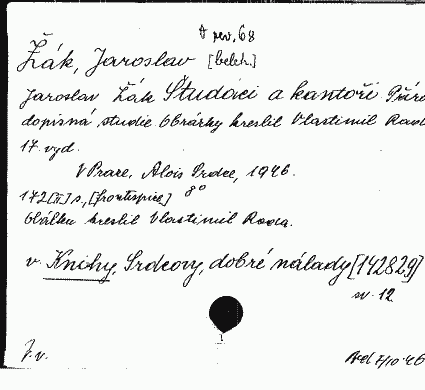 rev. 68
Žák, Jaroslav [beletr.]
Jaroslav Žák Študáci a kantoři Příro
dopisná studie Obrázky kreslil Vlastimil Rada
17. vyd.
V Praze, Alois Srdce, 1946.
172[I] s., [frontispice] 8°
Obálku kreslil Vlastimil Rada.
v. Knihy, Srdcovy, dobré nálady [142829]
sv. 12
J. v.
7/10 46